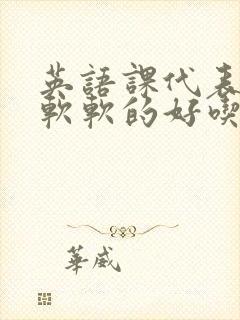 英語課代表
軟軟的好喫
華威